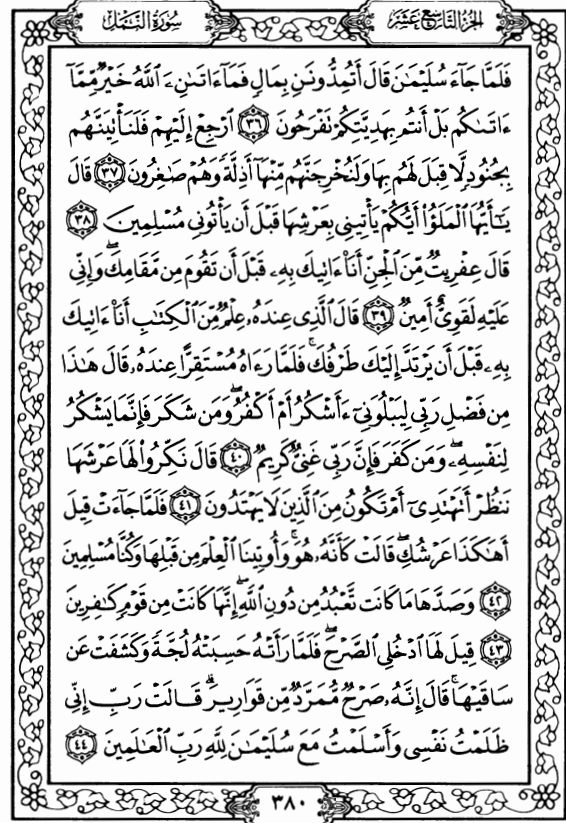 سُورَةُ النَّمْلِ
الجُزْءُ التَّاسِعَ عَشَرَ
فَلَمَّا جَآءَ سُلَيْمَٰنَ قَالَ أَتُمِدُّونَنِ بِمَالٍ فَمَآ ءَاتَىٰنِۦَ ٱللَّهُ خَيْرٌ مِّمَّآ
ءَاتَىٰكُم بَلْ أَنتُم بِهَدِيَّتِكُمْ تَفْرَحُونَ ٣٦ ٱرْجِعْ إِلَيْهِمْ فَلَنَأْتِيَنَّهُم
بِجُنُودٍ لَّا قِبَلَ لَهُم بِهَا وَلَنُخْرِجَنَّهُم مِّنْهَآ أَذِلَّةً وَهُمْ صَٰغِرُونَ ٣٧ قَالَ
يَٰٓأَيُّهَا ٱلْمَلَؤُا۟ أَيُّكُمْ يَأْتِينِى بِعَرْشِهَا قَبْلَ أَن يَأْتُونِى مُسْلِمِينَ ٣٨
قَالَ عِفْرِيتٌ مِّنَ ٱلْجِنِّ أَنَا۠ ءَاتِيكَ بِهِۦ قَبْلَ أَن تَقُومَ مِن مَّقَامِكَ ۖ وَإِنِّى
عَلَيْهِ لَقَوِىٌّ أَمِينٌ ٣٩ قَالَ ٱلَّذِى عِندَهُۥ عِلْمٌ مِّنَ ٱلْكِتَٰبِ أَنَا۠ ءَاتِيكَ
بِهِۦ قَبْلَ أَن يَرْتَدَّ إِلَيْكَ طَرْفُكَ ۚ فَلَمَّا رَءَاهُ مُسْتَقِرًّا عِندَهُۥ قَالَ هَٰذَا
مِن فَضْلِ رَبِّى لِيَبْلُوَنِىٓ ءَأَشْكُرُ أَمْ أَكْفُرُ ۖ وَمَن شَكَرَ فَإِنَّمَا يَشْكُرُ
لِنَفْسِهِۦ ۖ وَمَن كَفَرَ فَإِنَّ رَبِّى غَنِىٌّ كَرِيمٌ ٤٠ قَالَ نَكِّرُوا۟ لَهَا عَرْشَهَا
نَنظُرْ أَتَهْتَدِىٓ أَمْ تَكُونُ مِنَ ٱلَّذِينَ لَا يَهْتَدُونَ ٤١ فَلَمَّا جَآءَتْ قِيلَ
أَهَٰكَذَا عَرْشُكِ ۖ قَالَتْ كَأَنَّهُۥ هُوَ ۚ وَأُوتِينَا ٱلْعِلْمَ مِن قَبْلِهَا وَكُنَّا مُسْلِمِينَ
٤٢ وَصَدَّهَا مَا كَانَت تَّعْبُدُ مِن دُونِ ٱللَّهِ ۖ إِنَّهَا كَانَتْ مِن قَوْمٍ كَٰفِرِينَ
٤٣ قِيلَ لَهَا ٱدْخُلِى ٱلصَّرْحَ ۖ فَلَمَّا رَأَتْهُ حَسِبَتْهُ لُجَّةً وَكَشَفَتْ عَن
سَاقَيْهَا ۚ قَالَ إِنَّهُۥ صَرْحٌ مُّمَرَّدٌ مِّن قَوَارِيرَ ۗ قَالَتْ رَبِّ إِنِّى
ظَلَمْتُ نَفْسِى وَأَسْلَمْتُ مَعَ سُلَيْمَٰنَ لِلَّهِ رَبِّ ٱلْعَٰلَمِينَ ٤٤
٣٨٠